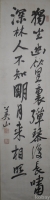 獨坐幽篁裏彈琴復長嘯
深林人不知明月来相照
美山